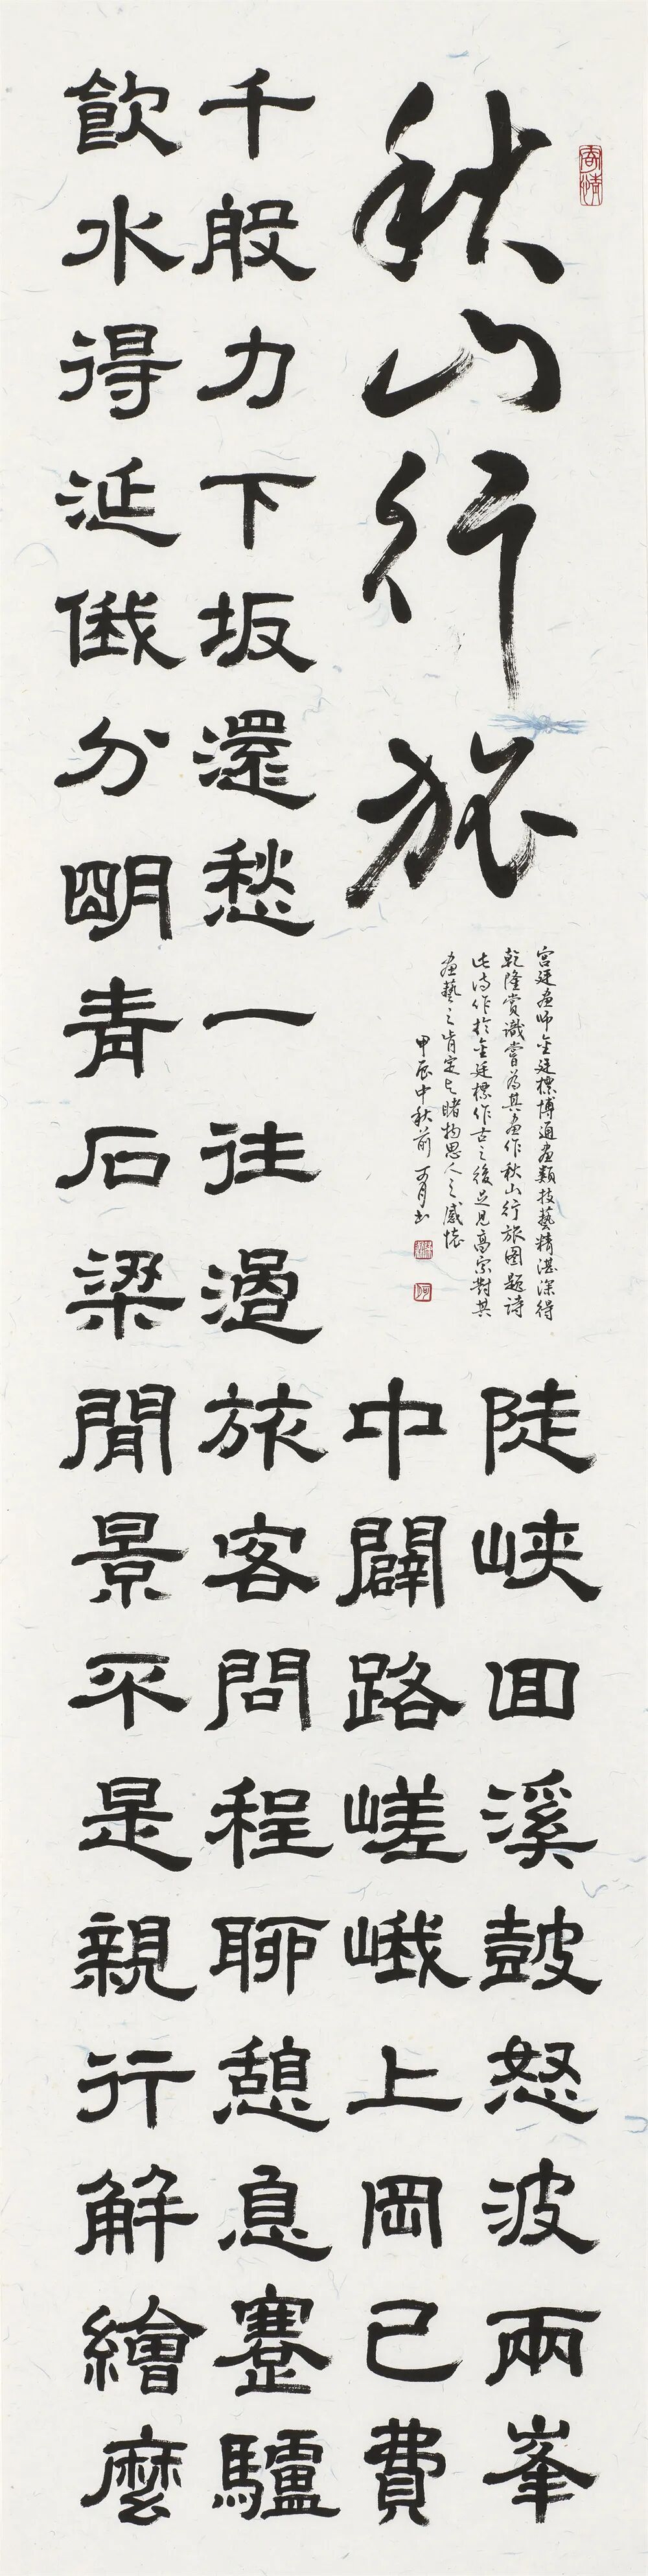 秋山行旅
宮廷畫師金廷標博通畫類技藝精湛深得
乾隆賞識嘗為其畫作秋山行旅圖題詩
此詩作於金廷標作古之後足見高宗對其
畫藝之肯定與睹物思人之感懷
甲辰中秋前
陡峽回溪鼓怒波兩峯
中闢路嵯峨上岡已費
千般力下坂還愁一往過旅客問程聊憩息蹇驢
飲水得延俄分明青石梁閒景不是親行解繪麼